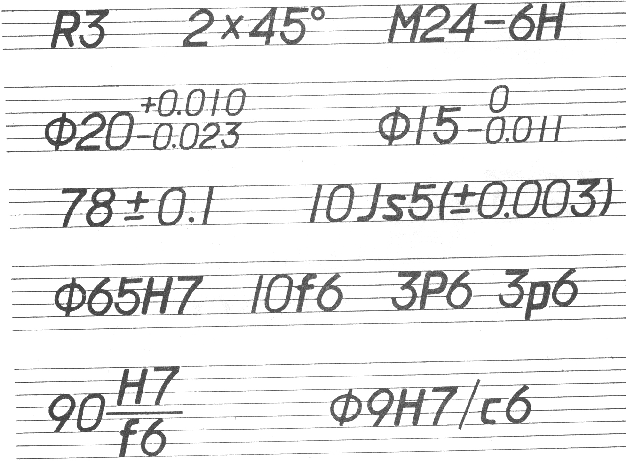 R3 2×45° M24-6H
Φ20 +0.010 -0.023 Φ15 0 -0.011
78±0.1 10Js5(±0.003)
Φ65H7 10f6 3P6 3p6
90 H7/f6 Φ9H7/c6